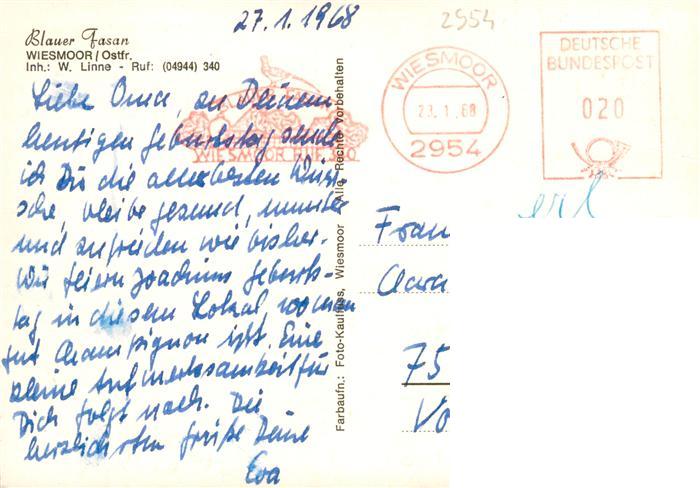 27.1.1968
2954
Blauer Fasan
WIESMOOR/Ostfr.
Inh.: W. Linne - Ruf: (04944) 340
Liebe Oma, zu Deinem
heutigen Geburtstag sende
ich Dir die allerbesten Wün-
sche, bleibe gesund, munter
und zufrieden wie bisher.
Wir feiern Joachims Geburts-
tag in diesem Lokal, wo man
gut Champignon ißt. Eine
kleine Aufmerksamkeit für
Dich folgt nach. Die
herzlichsten Grüße Deine
Eva
WIESMOOR RUF 340
Farbaufn.: Foto-Kaufhliss, Wiesmoor Alle Rechte vorbehalten
WIESMOOR
23.1.68
2954
DEUTSCHE
BUNDESPOST
020
Frau
Clara
75
Vo